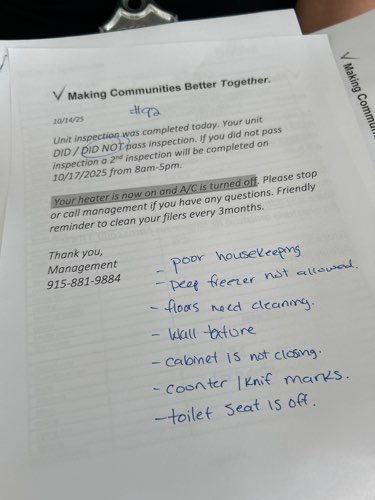 ✓ Making Communities Better Together.
#92
10/14/25
Unit inspection was completed today. Your unit
DID / DID NOT pass inspection. If you did not pass
inspection a 2nd inspection will be completed on
10/17/2025 from 8am-5pm.
Your heater is now on and A/C is turned off. Please stop
or call management if you have any questions. Friendly
reminder to clean your filers every 3months.
Thank you,
Management
915-881-9884
- poor housekeeping
- Deep freezer not allowed.
- floors need cleaning.
- Wall txture
- cabinet is not closing.
- counter / knif marks.
- toilet seat is off.
✓ Making Commun